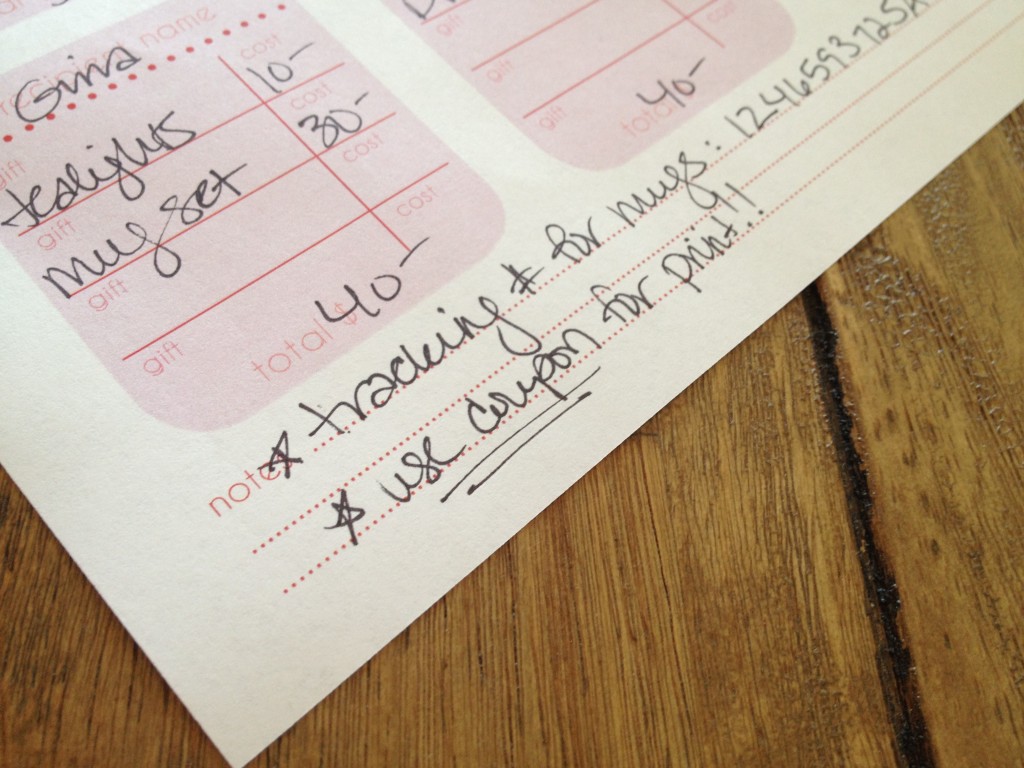 recipient name
Gina
gift
tealights
cost
10-
gift
mug set
cost
30-
gift
cost
gift
cost
total $
40-
gift
gift
cost
gift
total
40-
notes
☆ tracking # for mugs: 124659372
☆ use coupon for print!!